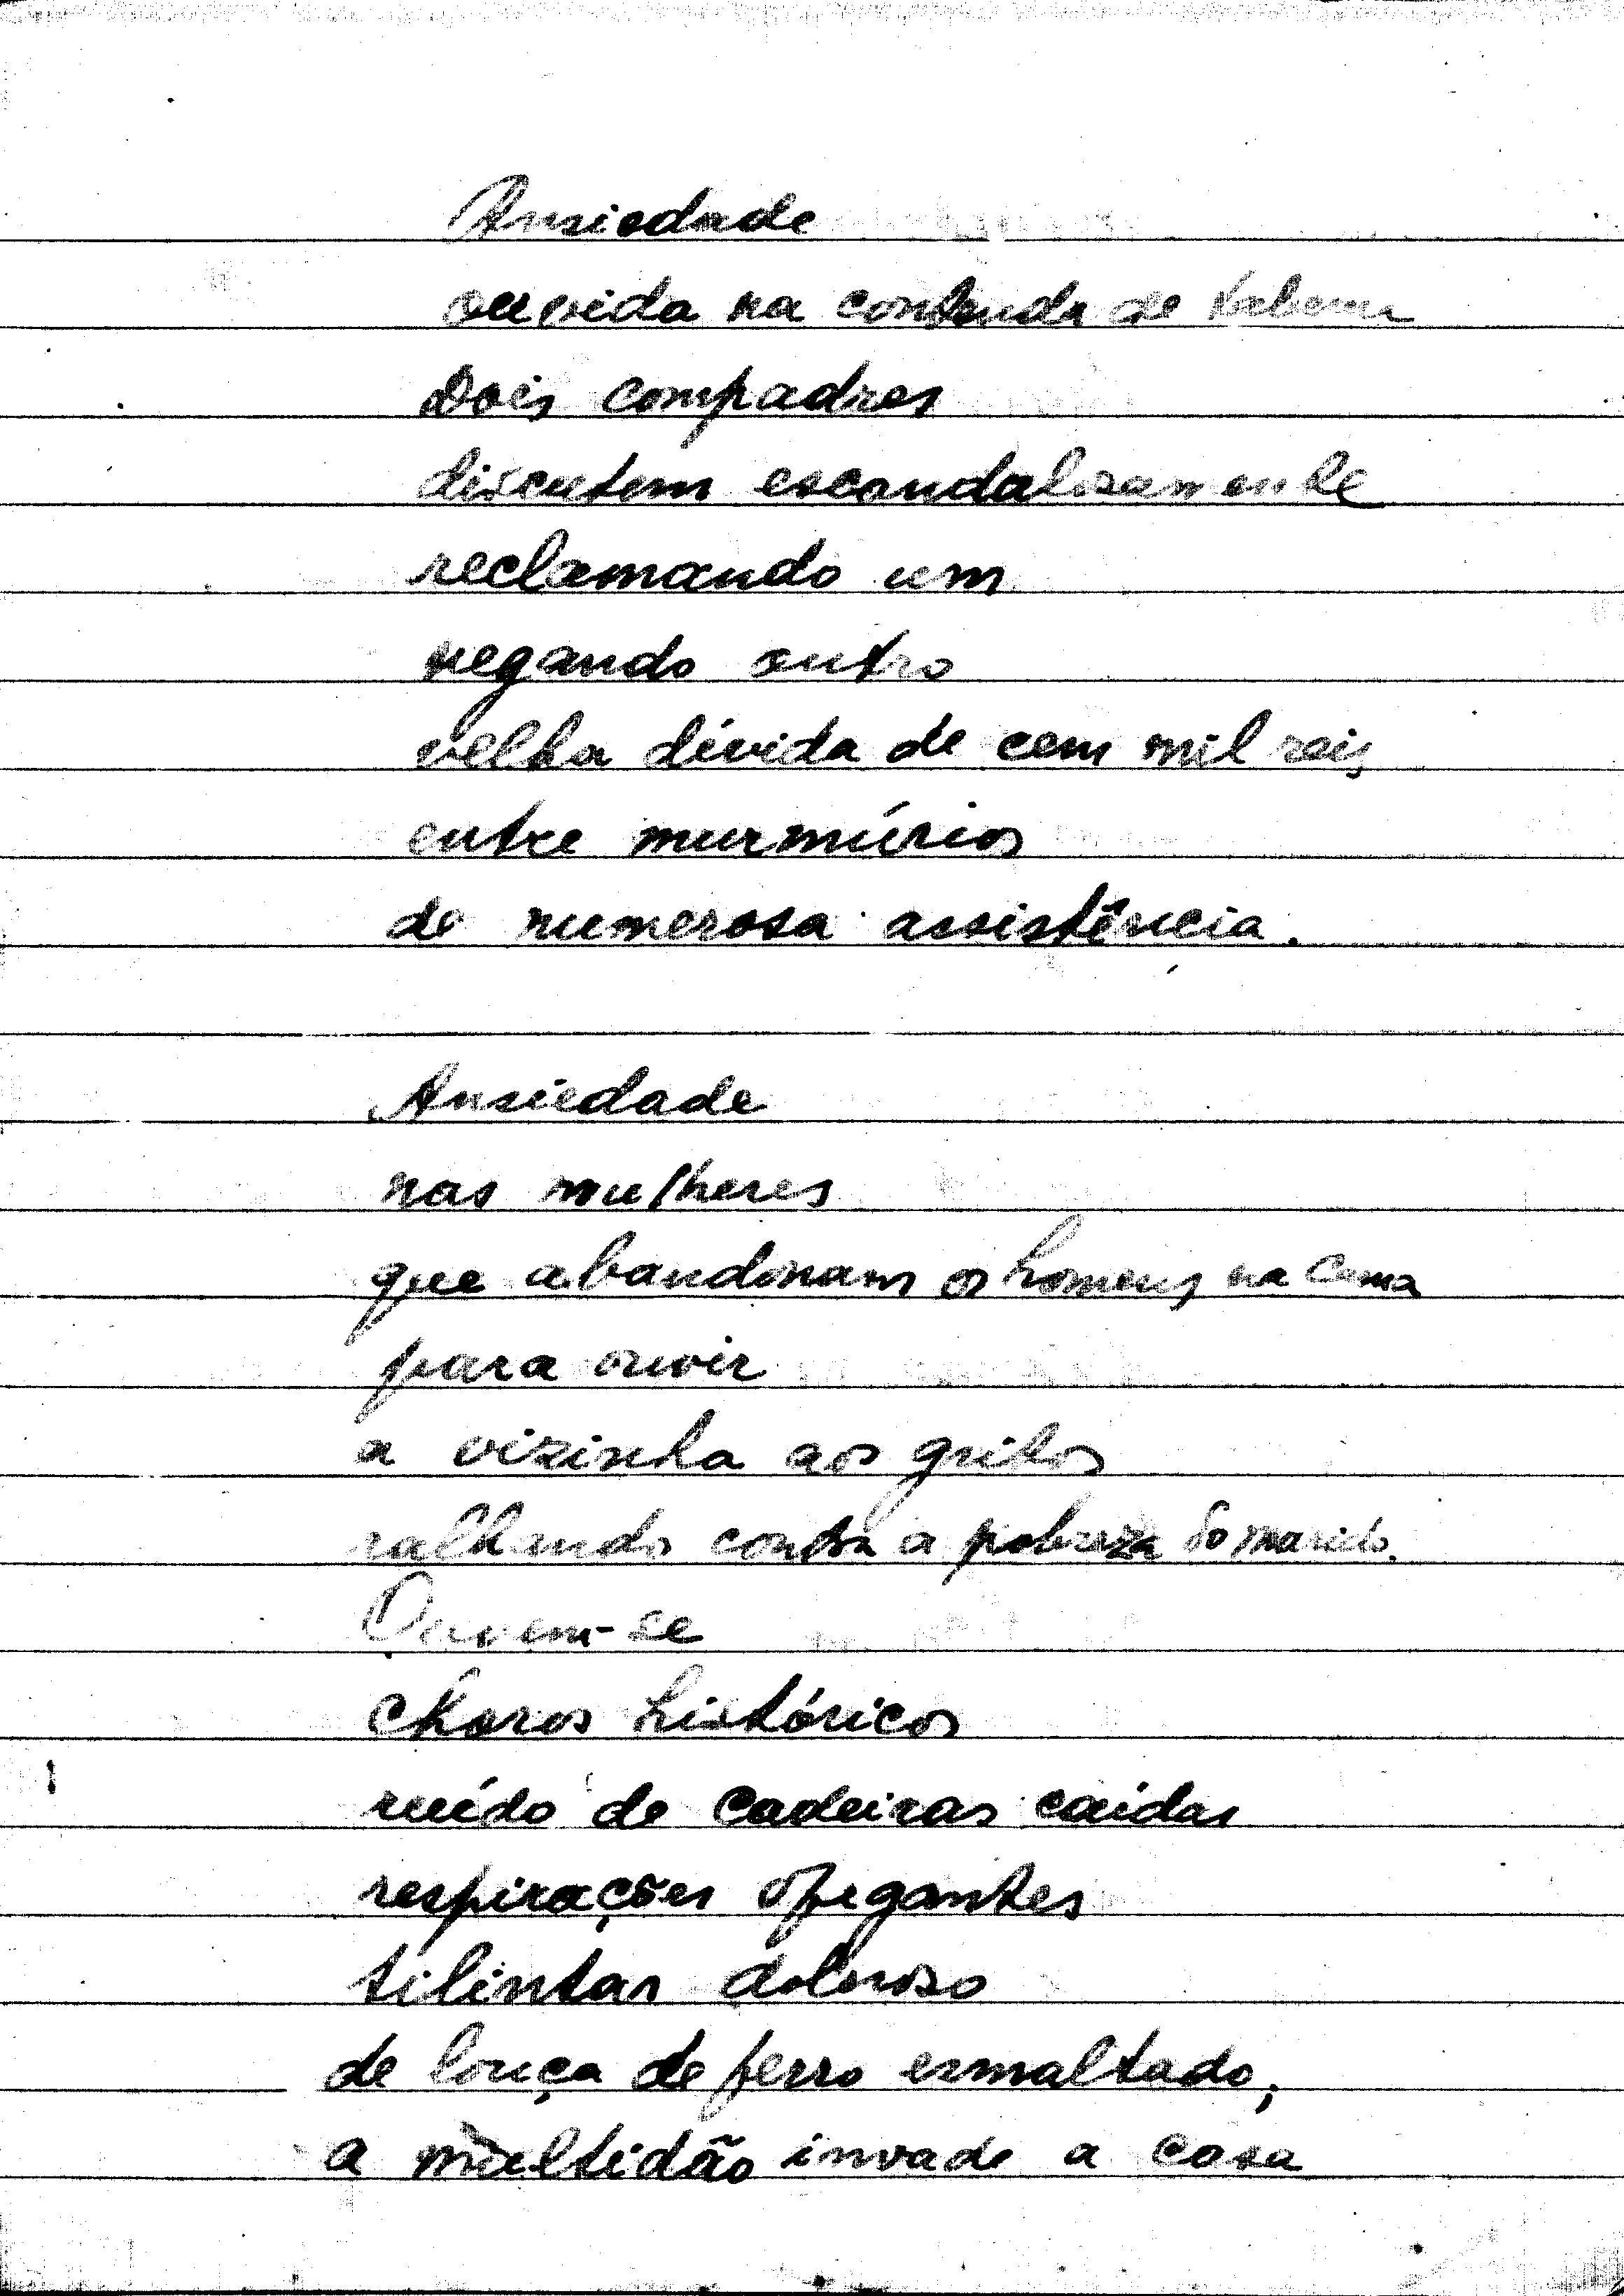 Ansiedade
ouvida na contenda de taberna
Dois compadres
discutem escandalosamente
reclamando um
negando outro
velha dívida de cem mil reis
entre murmúrios
de numerosa assistência.
Ansiedade
nas mulheres
que abandonam os homens na cama
para ouvir
a vizinha aos gritos
ralhando contra a pobreza do marido.
Ouvem-se
choros histéricos
ruído de cadeiras caídas
respirações ofegantes
tilintar doloroso
de louça de ferro esmaltado;
a multidão invade a casa